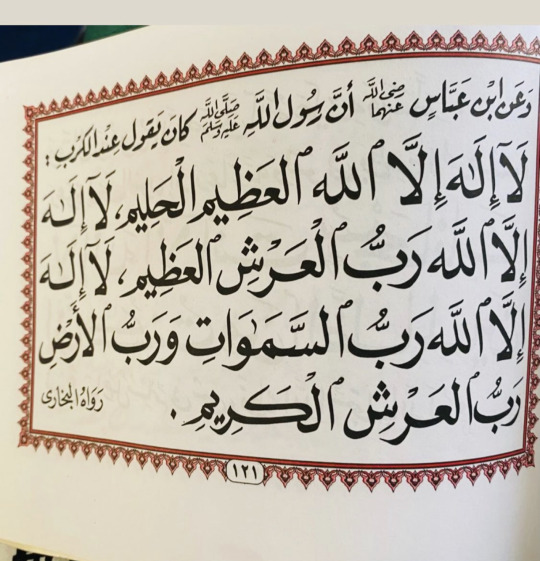 وَعَنِ ابْنِ عَبَّاسٍ رَضِيَ اللَّهُ عَنْهُمَا أَنَّ رَسُولَ اللَّهِ صَلَّى اللَّهُ عَلَيْهِ وَسَلَّمَ كَانَ يَقُولُ عِنْدَ الكَرْبِ :
لَآ إِلَٰهَ إِلَّا ٱللَّه ٱلعَظِيم ٱلْحَلِيم، لَآ إِلَٰهَ
إِلَّا ٱللَّه رَبُّ ٱلْعَرْشِ ٱلعَظِيم، لَآ إِلَٰهَ
إِلَّا ٱللَّه رَبُّ ٱلسَّمَٰوَاتِ وَرَبُّ ٱلأَرْضِ
رَبُّ ٱلعَرْشِ ٱلْكَرِيمِ . رَوَاهُ البُخَارى
١٢١